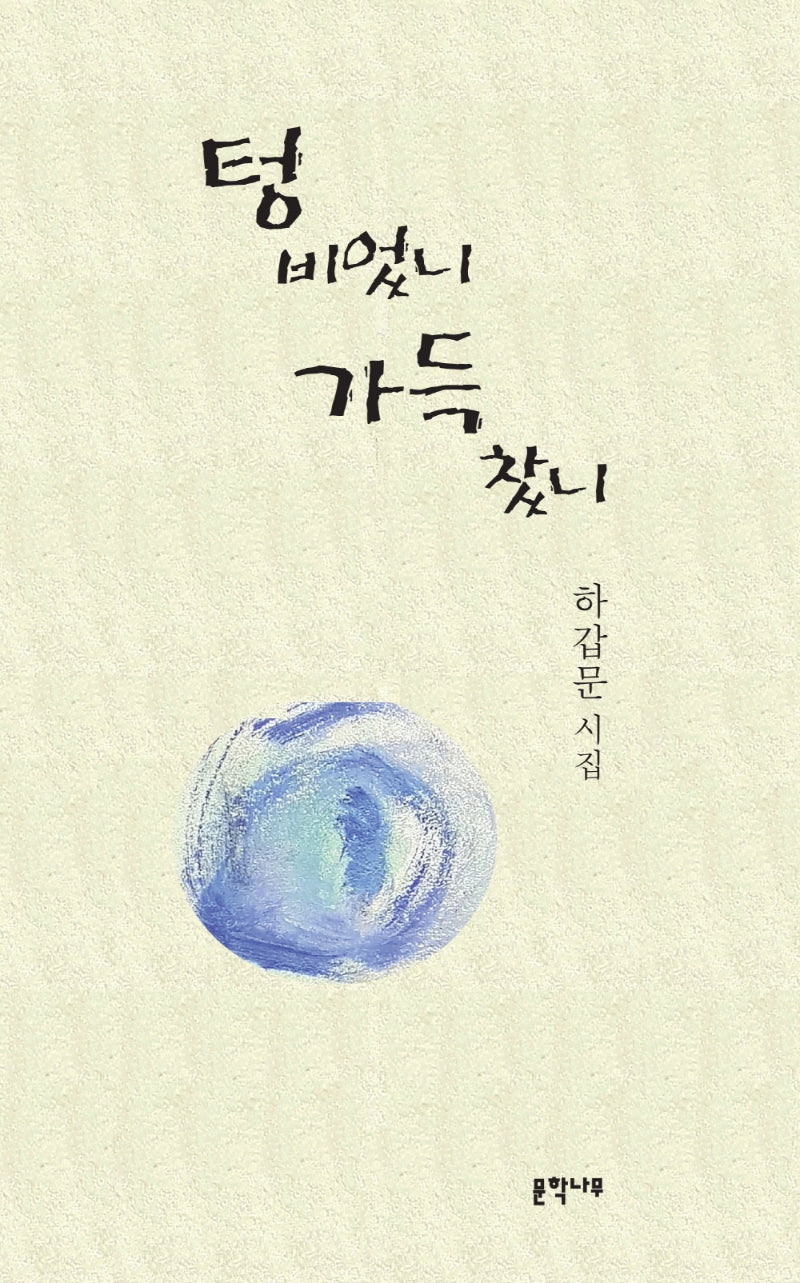 텅
비었니
가득
찼니
하갑문 시집
문학나무